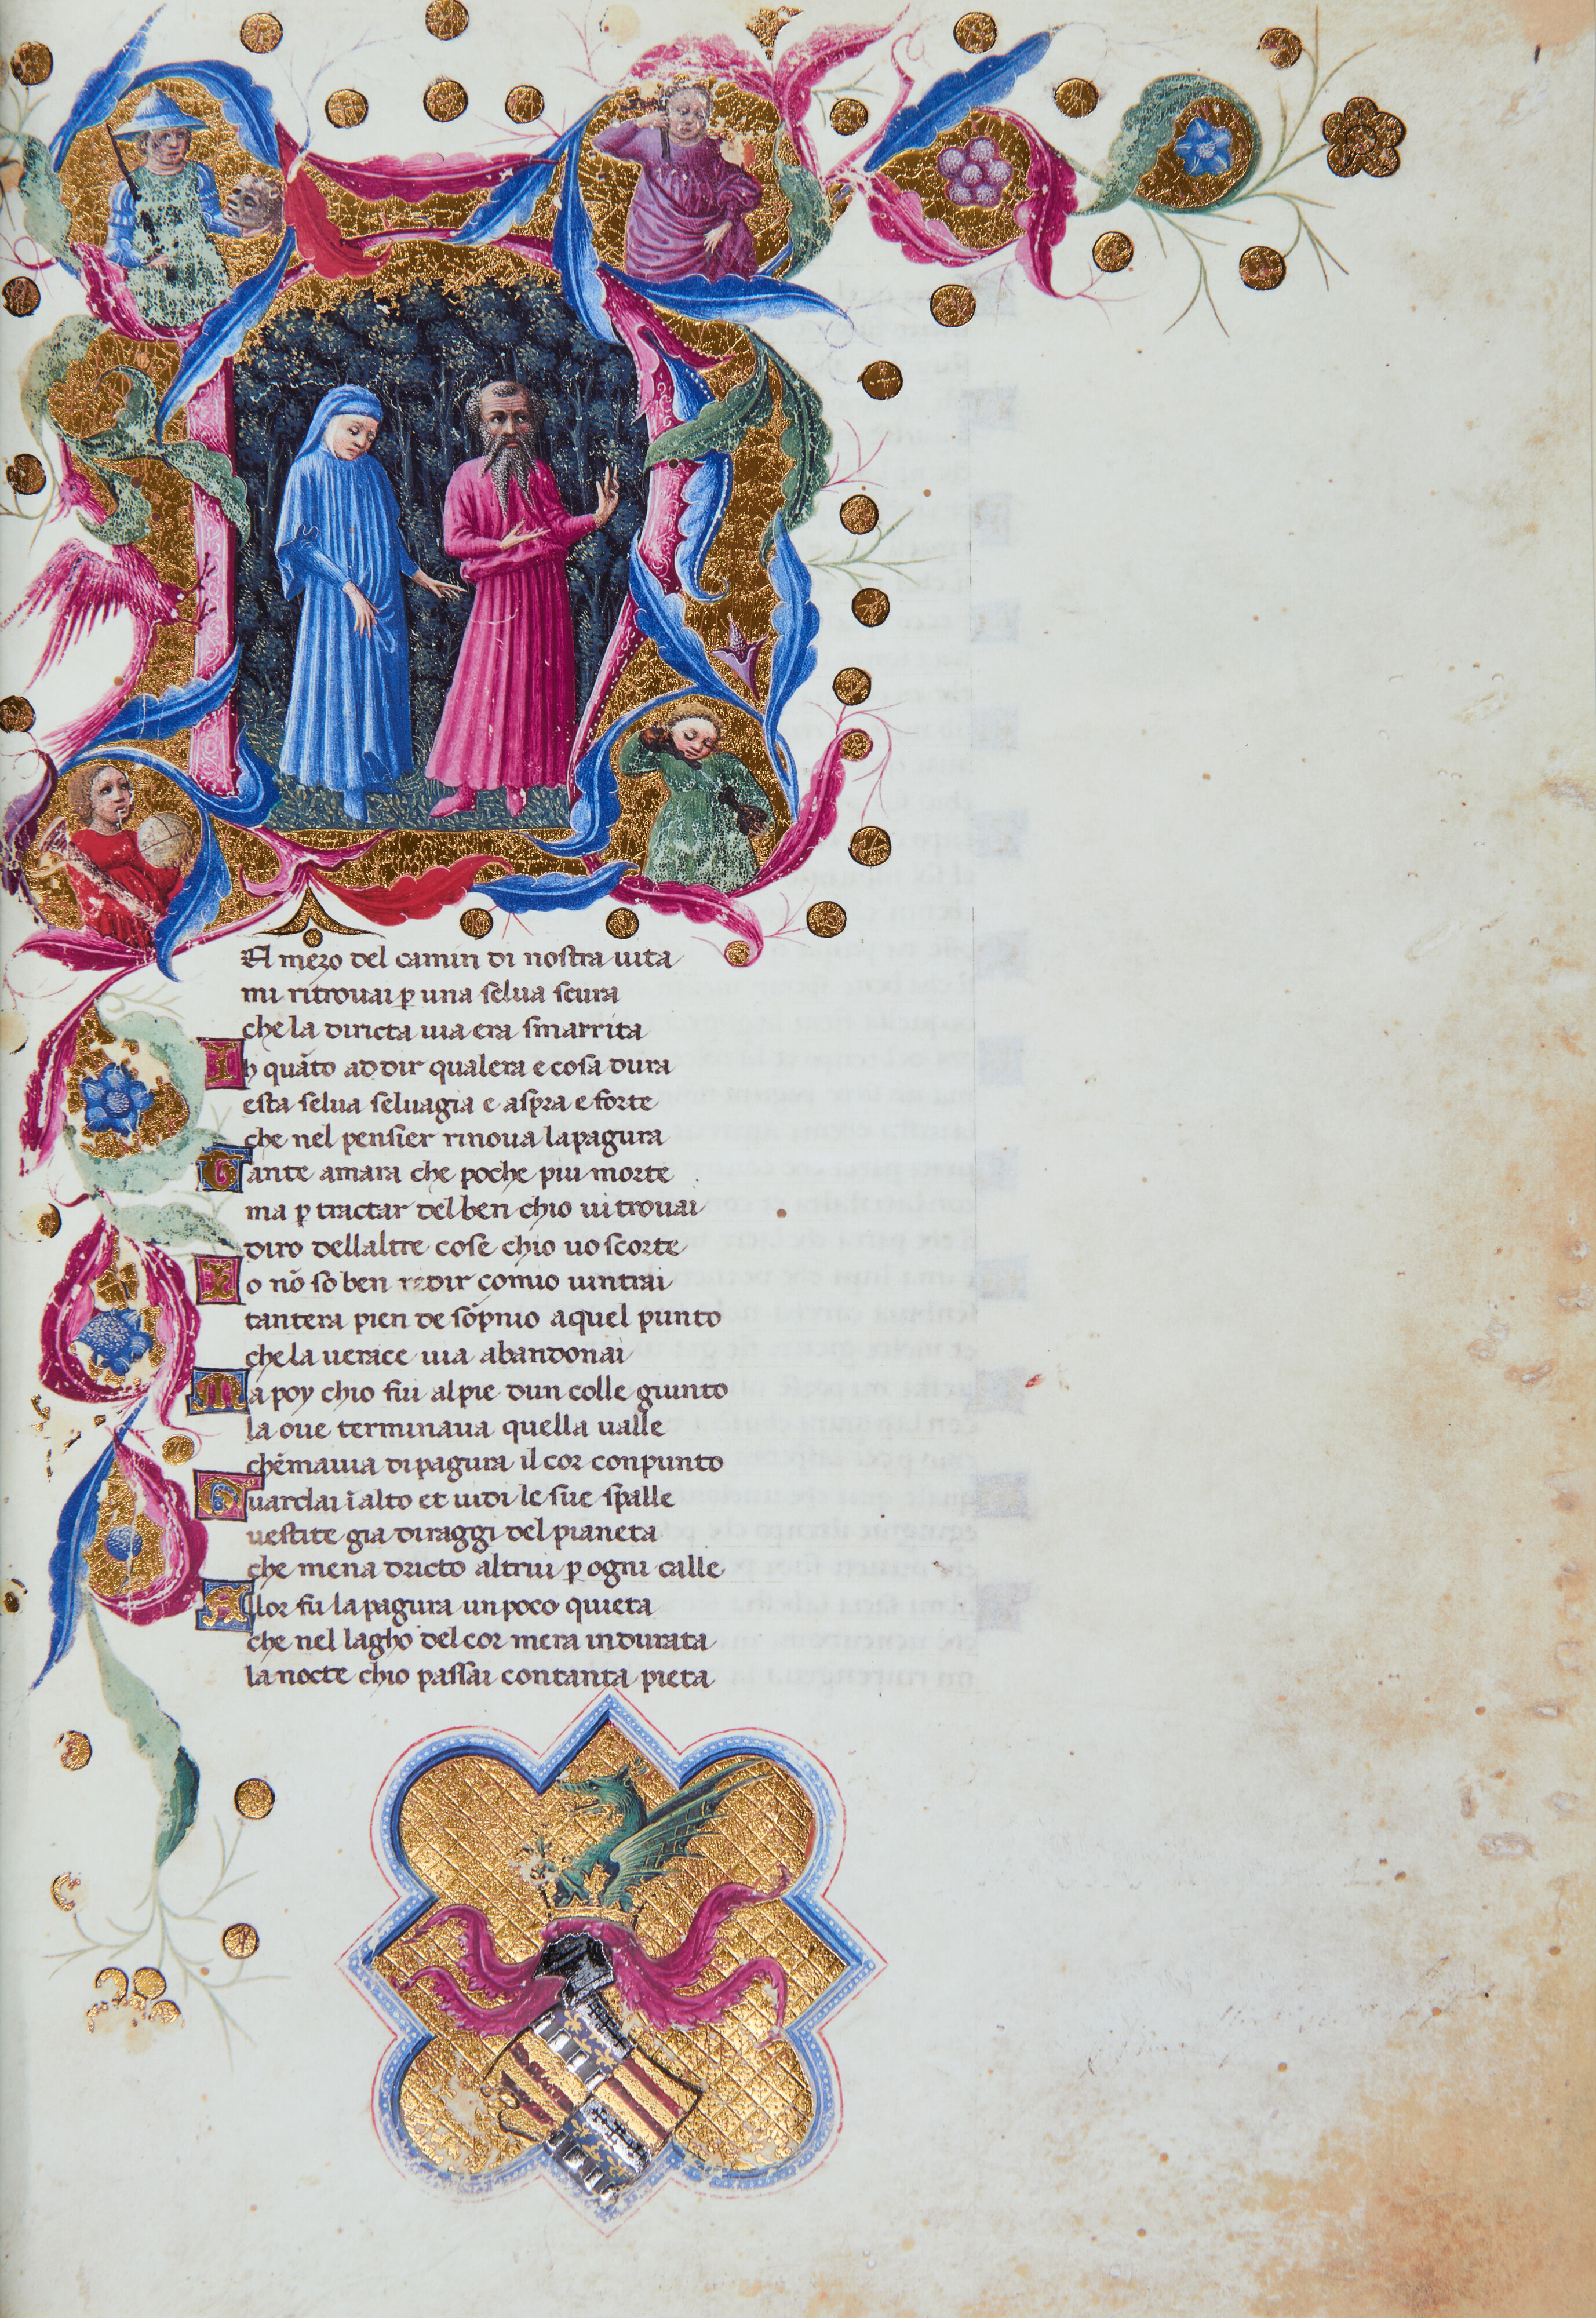 EL mezo del camin di nostra uita
mi ritrouai ꝑ una selua scura
che la diricta uia era smarrita
Ih quãto ad dir qualera e cosa dura
esta selua seluagia e aspra e forte
che nel pensier rinoua la pagura
Tante amara che poche piu morte
ma ꝑ tractar del ben chio ui trouai
diro dellaltre cose chio uo scorte
Io nõ so ben redir comio uintrai
tantera pien de sopnio a quel punto
che la uerace uia abandonai
Ma poy chio fui al pie dun colle giunto
la oue terminaua quella ualle
che mauia di pagura il cor conpunto
Guardai ĩ alto et uidi le sue spalle
uestite gia di raggi del pianeta
che mena dricto altrui ꝑ ogni calle
Allor fu la pagura un poco quieta
che nel lagho del cor mera indurata
la nocte chio passai con tanta pieta